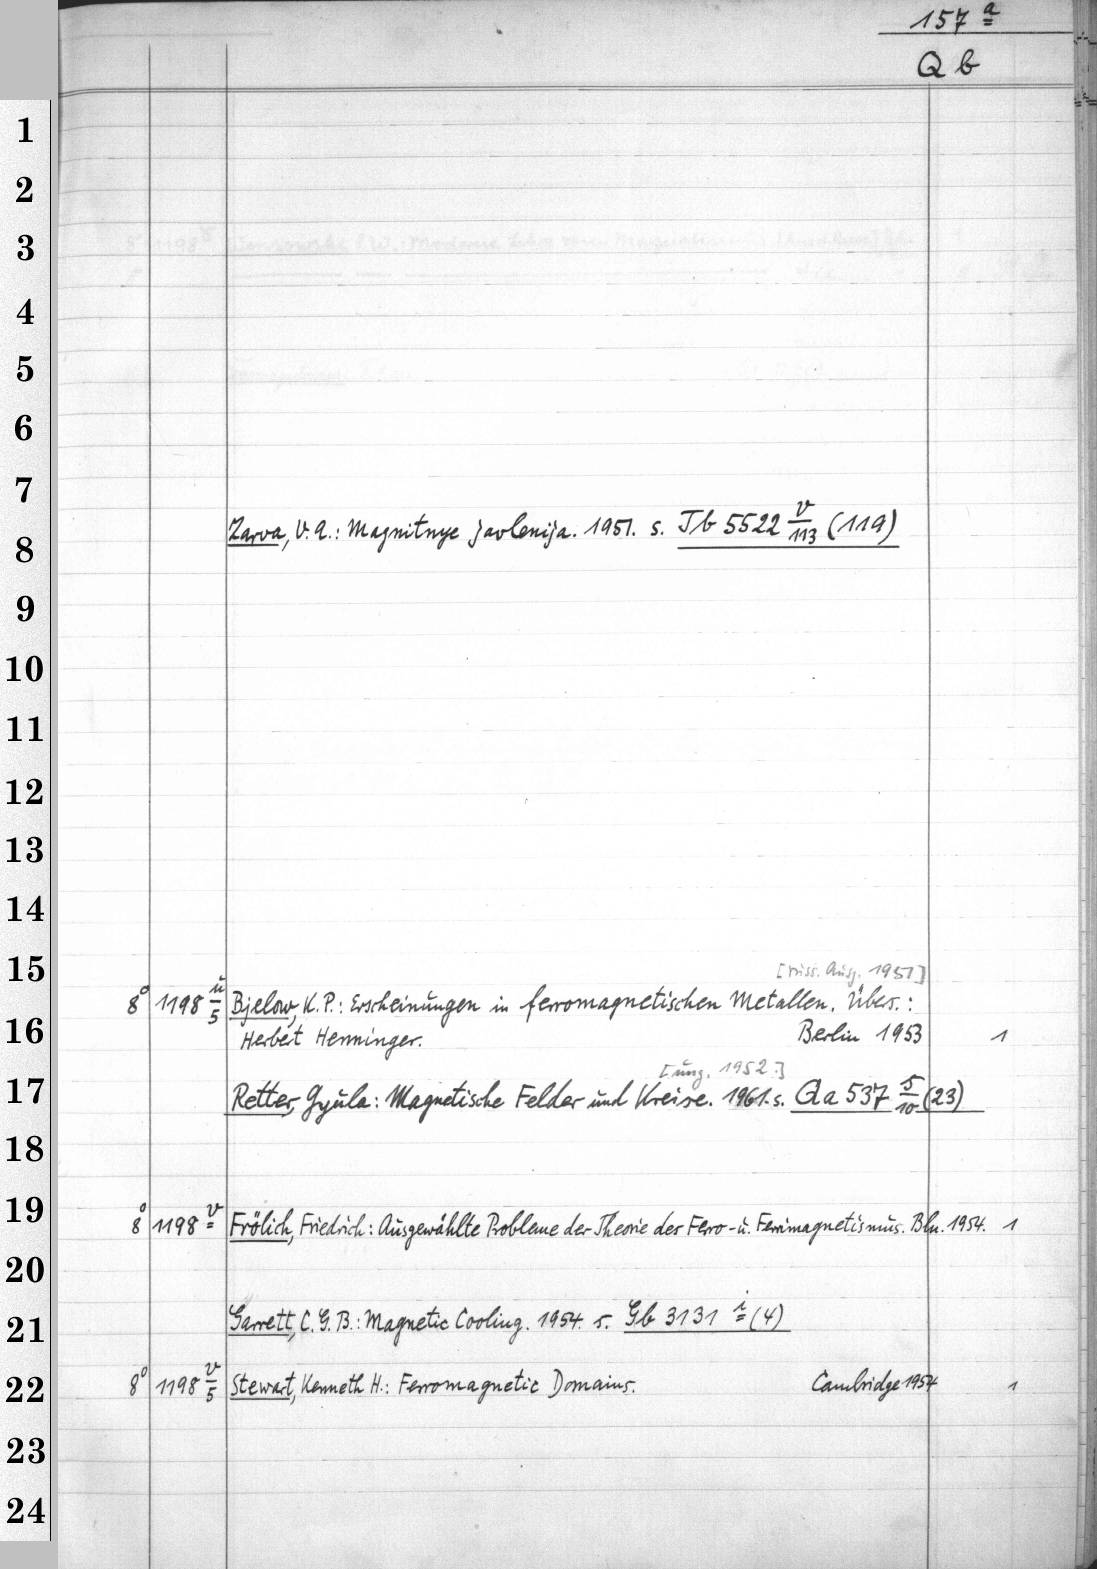 157 a
Q b
1
2
3
4
5
6
7
Zarva, V. A.: Magnitnye javlenija. 1951. s. Tb 5522 v/113 (119)
8
9
10
11
12
13
14
15
[russ. Ausg. 1951]
8° 1198 u/5 Bjelow, K. P.: Erscheinungen in ferromagnetischen Metallen. Übers.:
16 Herbert Henninger. Berlin 1953 1
[ung. 1952]
17 Retter, Gyula: Magnetische Felder und Kreise. 1961. s. Qa 537 5/10 (23)
18
19
8° 1198 v Frölich, Friedrich: Ausgewählte Probleme der Theorie des Ferro- u. Ferrimagnetismus. Bln. 1954. 1
20
21 Garrett, C. G. B.: Magnetic Cooling. 1954. s. Gb 3131 i (4)
22 8° 1198 v/5 Stewart, Kenneth H.: Ferromagnetic Domains. Cambridge 1954 1
23
24